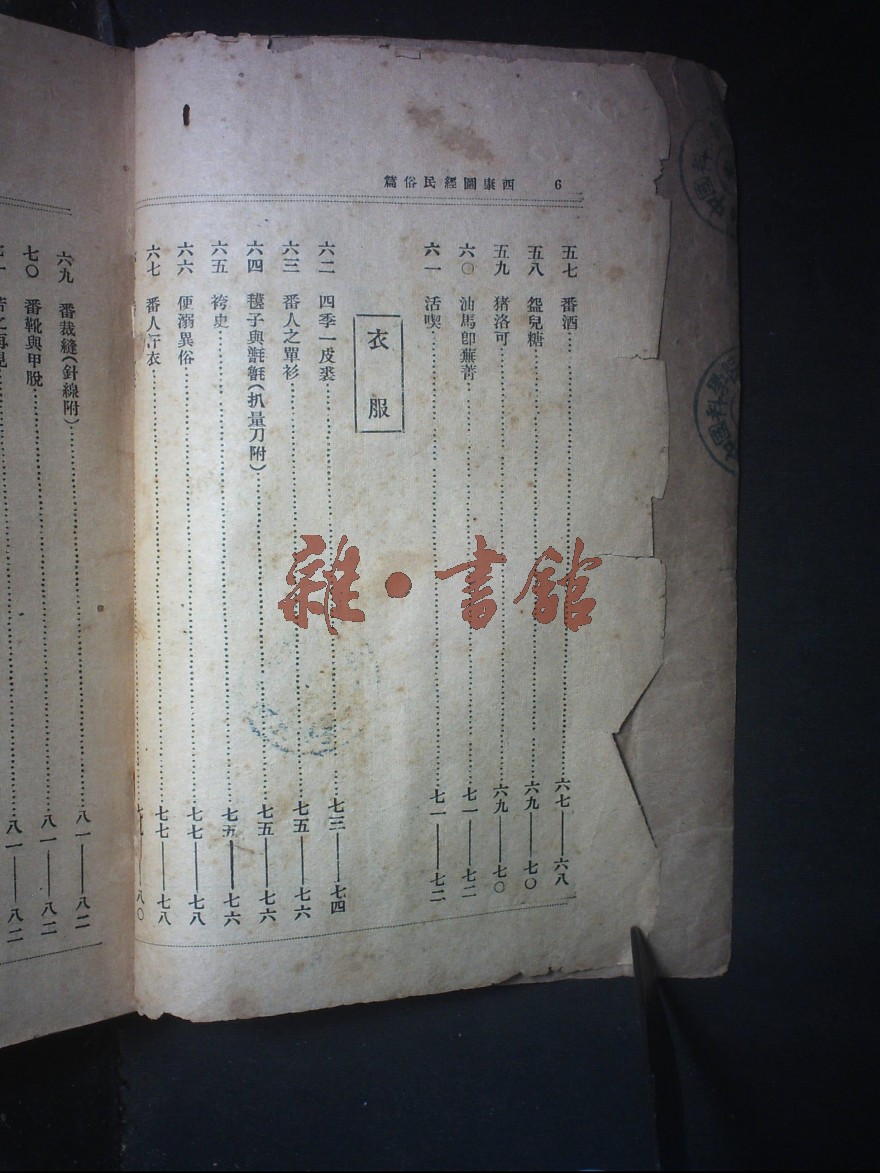 西康圖經民俗篇 6
五七 番酒 六七——六八
五八 盌兒糖 六九——七〇
五九 猪洛可 六九——七〇
六〇 油馬卽蕪菁 七一——七二
六一 活喫 七一——七二
衣服
六二 四季一皮裘 七三——七四
六三 番人之單衫 七五——七六
六四 毪子與氆氇(扒量刀附) 七五——七六
六五 袴史 七五——七六
六六 便溺異俗 七七——七八
六七 番人汗衣 七七——七八
八〇
六九 番裁縫(針線附) 八一——八二
七〇 番靴與甲脫 八一——八二
之再見 八一——八二
雜·書館